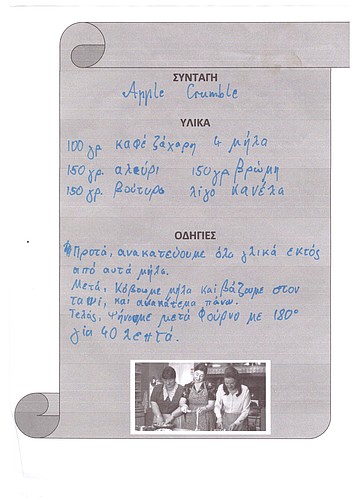 ΣΥΝΤΑΓΗ
Apple Crumble
ΥΛΙΚΑ
100 γρ καφέ ζάχαρη 4 μήλα
150 γρ. αλεύρι 150 γρ βρώμη
150 γρ. βούτυρο λίγο κανέλα
ΟΔΗΓΙΕΣ
Πρότα, ανακατεύουμε όλα γλικά εκτός
από αυτά μήλα.
Μετά, Κόβουμε μήλα και βάζουμε στον
ταψί, και ανακάτεμα πάνω.
Τελός, ψήνουμε μετά Φούρνο με 180°
για 40 λεπτά.